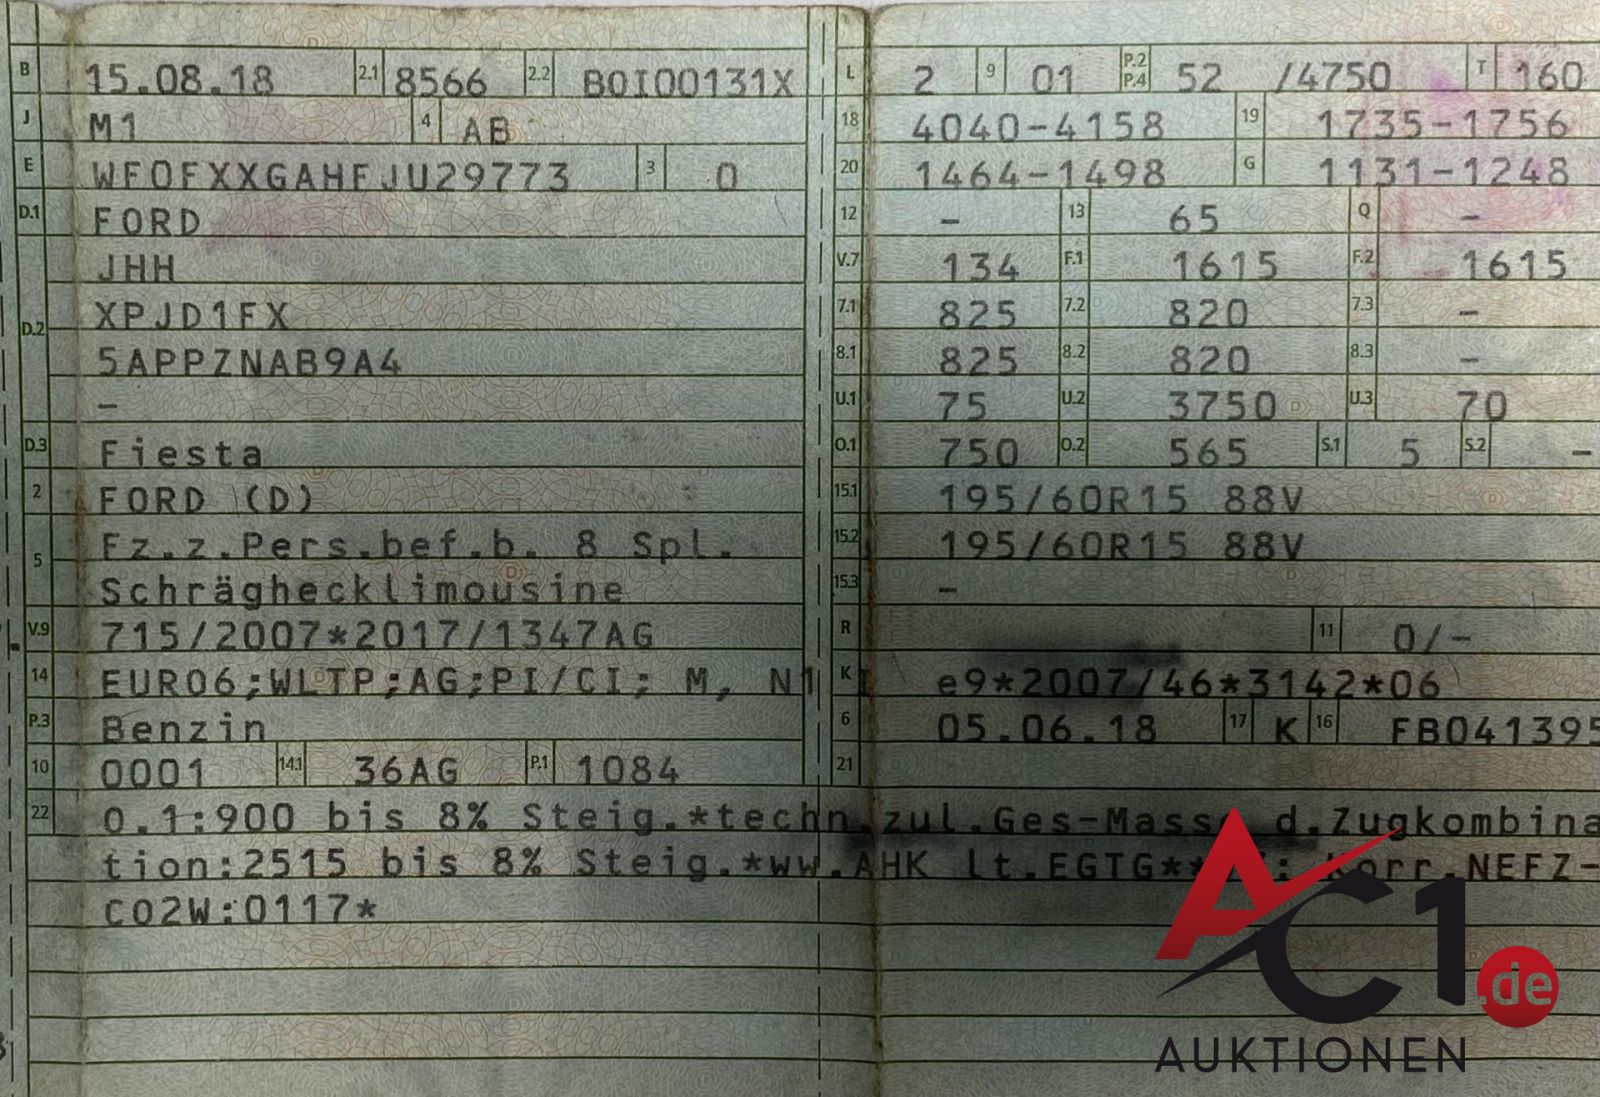 B 15.08.18 2.1 8566 2.2 B0I00131X L 2 9 01 P.2 P.4 52 /4750 T 160
J M1 4 AB 18 4040-4158 19 1735-1756
E WF0FXXGAHFJU29773 3 0 20 1464-1498 G 1131-1248
D.1 FORD 12 - 13 65 Q -
JHH V.7 134 F.1 1615 F.2 1615
D.2 XPJD1FX 7.1 825 7.2 820 7.3 -
5APPZNAB9A4 8.1 825 8.2 820 8.3 -
- U.1 75 U.2 3750 U.3 70
D.3 Fiesta O.1 750 O.2 565 S.1 5 S.2 -
2 FORD (D) 15.1 195/60R15 88V
5 Fz.z.Pers.bef.b. 8 Spl. 15.2 195/60R15 88V
Schräghecklimousine 15.3 -
V.9 715/2007*2017/1347AG R 11 0/-
14 EURO6;WLTP;AG;PI/CI; M, N1 I K e9*2007/46*3142*06
P.3 Benzin 6 05.06.18 17 K 16 FB041395
10 0001 14.1 36AG P.1 1084 21
22 O.1:900 bis 8% Steig.*techn.zul.Ges-Masse d.Zugkombina
tion:2515 bis 8% Steig.*ww.AHK lt.EGTG** : korr.NEFZ-
CO2W:0117*
AC1.de
AUKTIONEN